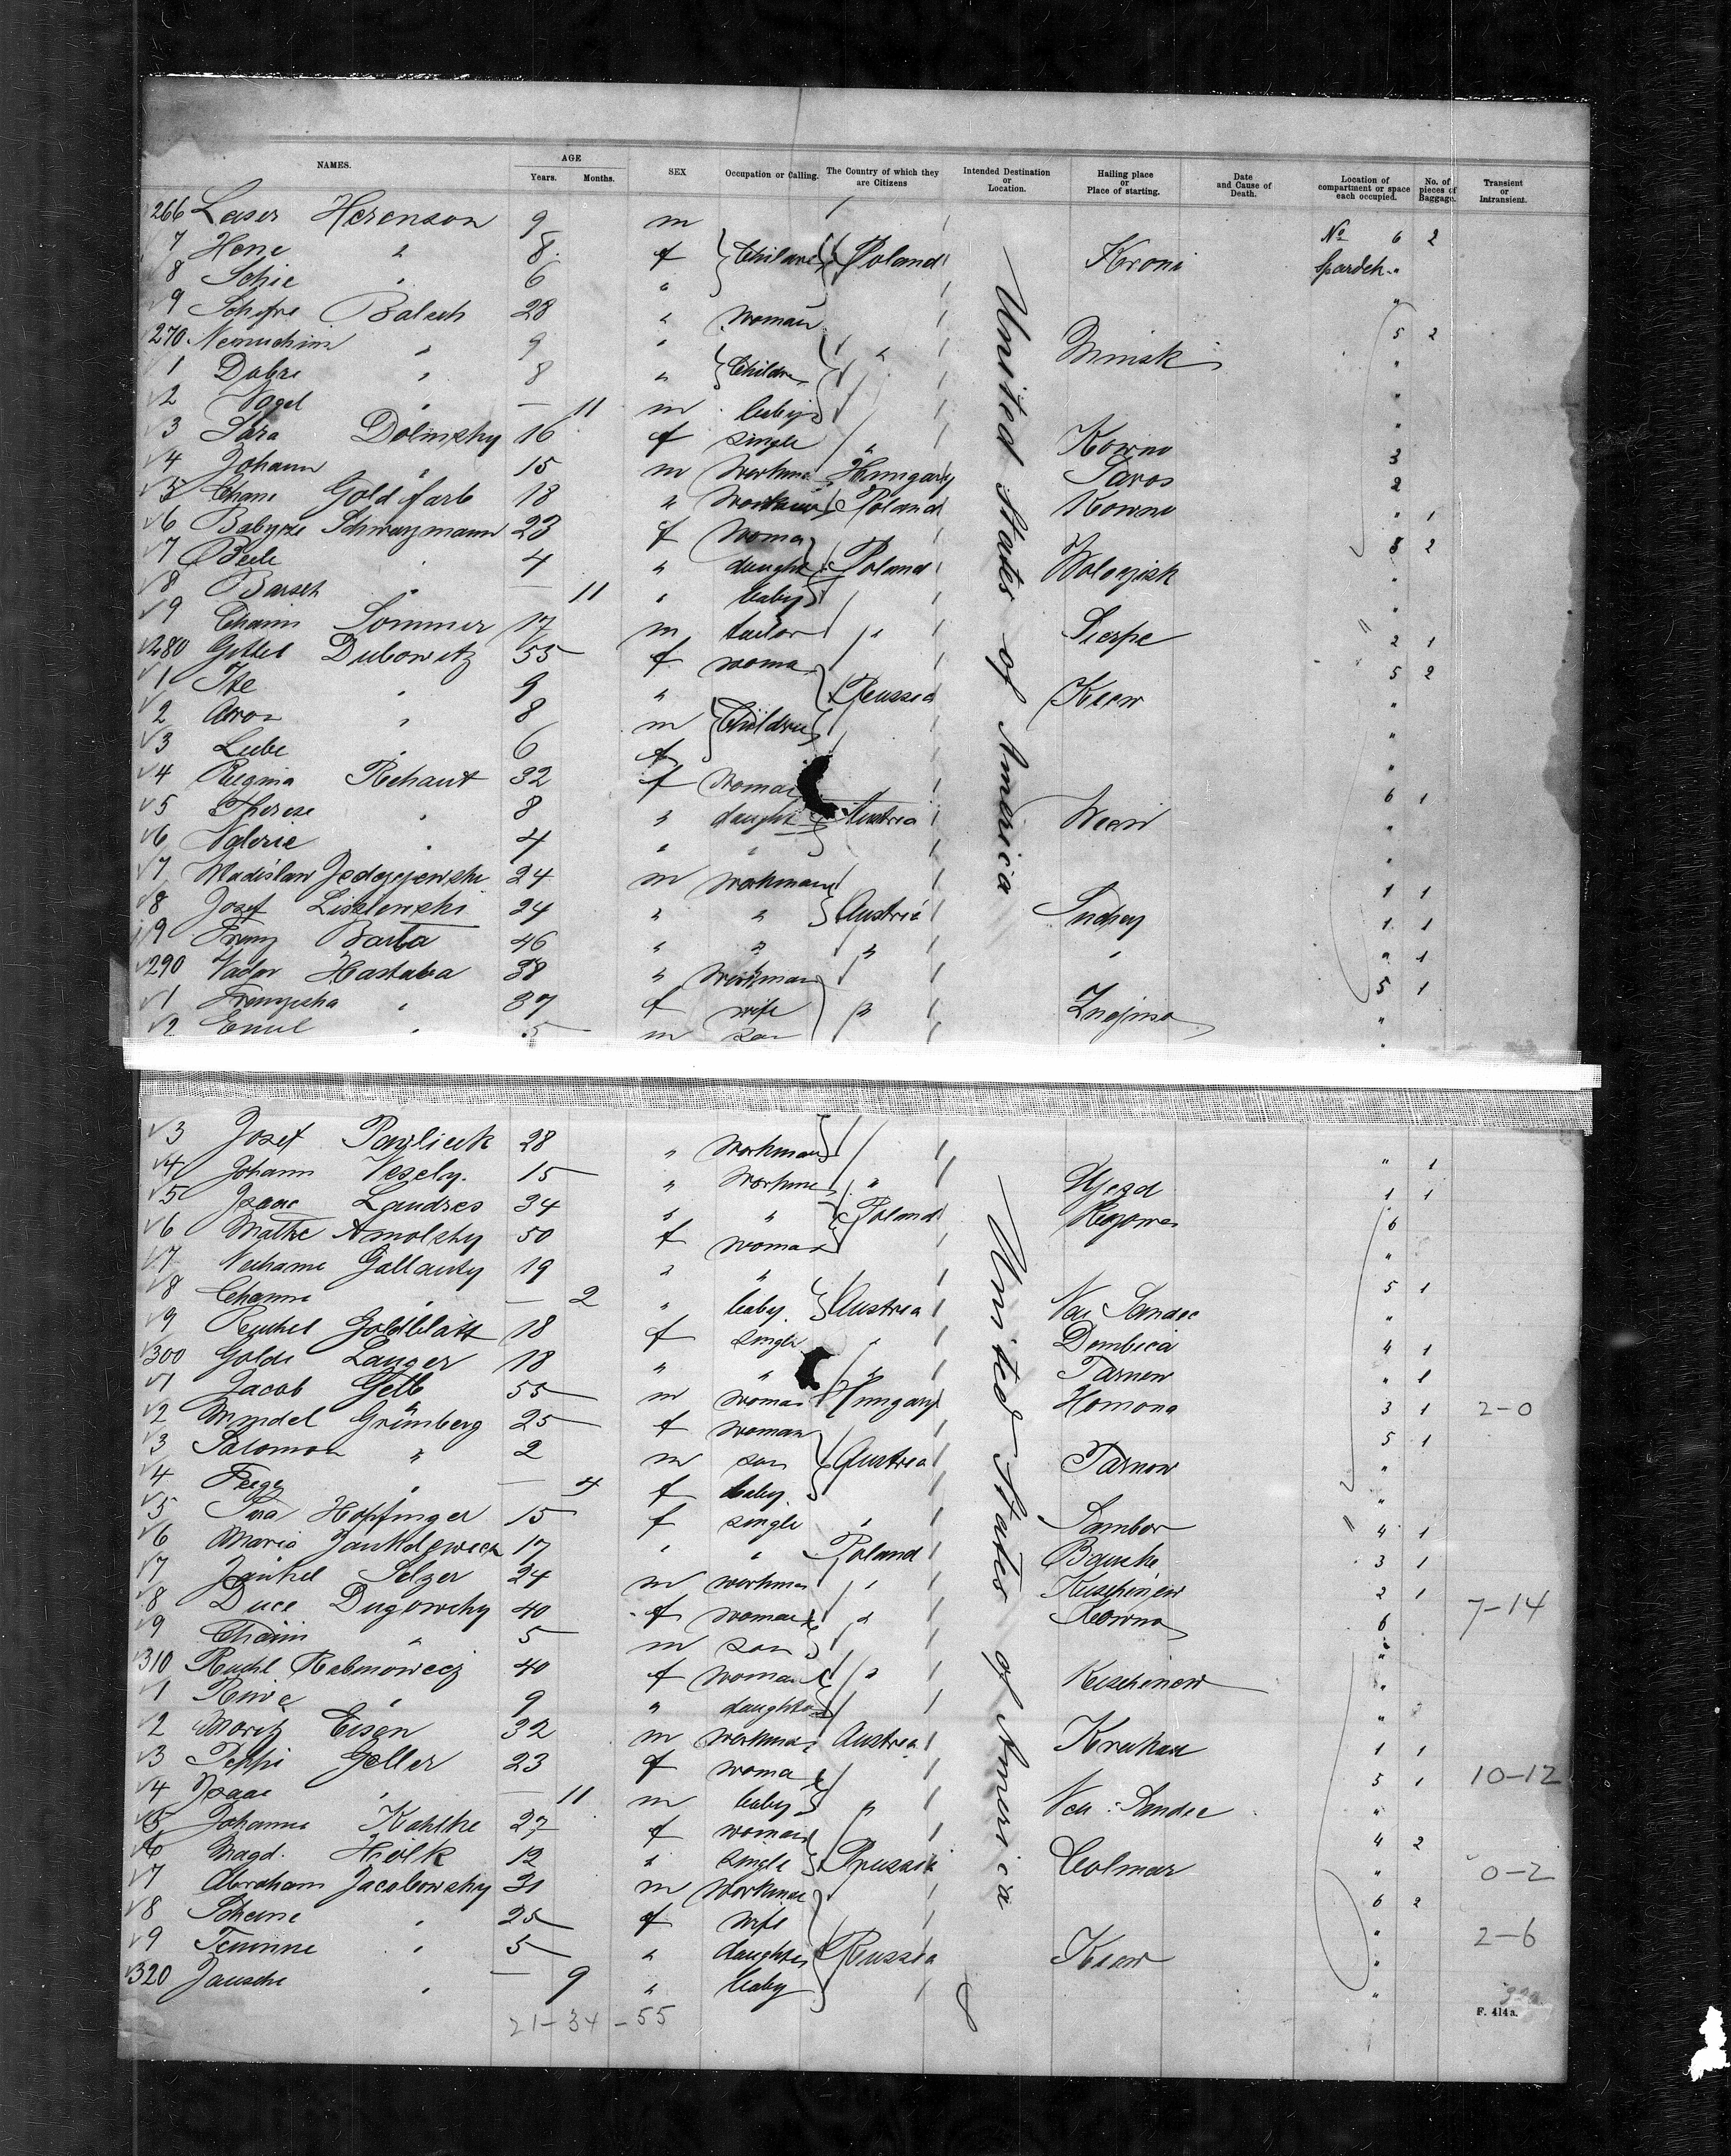 NAMES. AGE Years. Months. SEX Occupation or Calling. The Country of which they are Citizens Intended Destination or Location. Hailing place or Place of starting. Date and Cause of Death. Location of compartment or space each occupied. No. of pieces of Baggage. Transient or Intransient.
United States of America
266 Leiser Herenson 9 m No 6 2
7 Hene " 8 f Children Poland
8 Schie " 6 "
9 Balch 28 " woman 5 2
270 Nemuchim " 9 " " Minsk
1 Dobre " 8 " Children "
2 " — 11 m baby "
3 Sara Dolinsky 16 f single " Kowno 3
4 Johann " 15 m workman Hungary Saros 2
5 Chane Goldfarb 18 " Poland Kowno " 1
6 Schwarzmann 23 f woman 2
7 Beile " 4 " daught Poland "
8 " — 11 " baby "
9 Chaim Sommer 17 m tailor " Sierpe 2 1
280 Gittel Dubowitz 55 f woman 5 2
1 Ite " 9 " Russia Kiew "
2 Aron " 8 m Children "
3 Liebe " 6 f "
4 Regina Rehaut 32 f woman 6 1
5 Therese " 8 " daught Austria Wien "
6 Valerie " 4 " " "
7 Wladislaw 24 m workman 1 1
8 Josef Liszlewski 24 " " Austria 1 1
9 Franz Barta 46 " " " " " 1
290 Hastaba 38 " workman 5 1
1 " 37 f wife " Znojmo "
2 Emil " 5 m son "
3 Josef Pawlicek 28 " workman " 1
4 Johann Vesely. 15 " workman " Ujezd 1 1
5 Isaac Landres 34 " " Poland 6
6 Malke 50 f woman "
7 Nechame 19 " " 5 1
8 Channe " — 2 " baby. Austria Neu Sandec "
9 Goldblatt 18 f single " Dembica 4 1
300 Golde Langer 18 " " " Tarnow " 1
1 Jacob Gelb 55 m Hungary Homona 3 1 2-0
2 Mindel Grünberg 25 f woman 5 1
3 Salomon " 2 m son Austria Tarnow "
4 Feige " — 4 f baby. "
5 Sara Hopfinger 15 f single " Sambor 4 1
6 Maria 17 " " Poland 3 1
7 Jankel Selzer 24 m workman " Kuschinew 2 1
8 Duce 40 f woman " Kowno 6 7-14
9 Chaim " 5 m son "
310 Ruchl Rabinowicz 40 f woman " Kischinew "
1 Riwe " 9 " daughter "
2 Moritz Eisen 32 m workman Austria Krakau 1 1
3 Peppi Geller 23 f woman 5 1 10-12
4 Isaac " — 11 m baby " Neu Sandec "
5 Johanna Kahlke 27 f woman 4 2
6 Magd. 12 " single Prussia Colmar " 0-2
7 Abraham Jacobowsky 31 m workman 6 2
8 Scheine " 25 f wife " 2-6
9 " 5 " daughter Russia Kiew "
320 Jausche " — 9 " baby "
United States of America
21-34-55
F. 414 a.